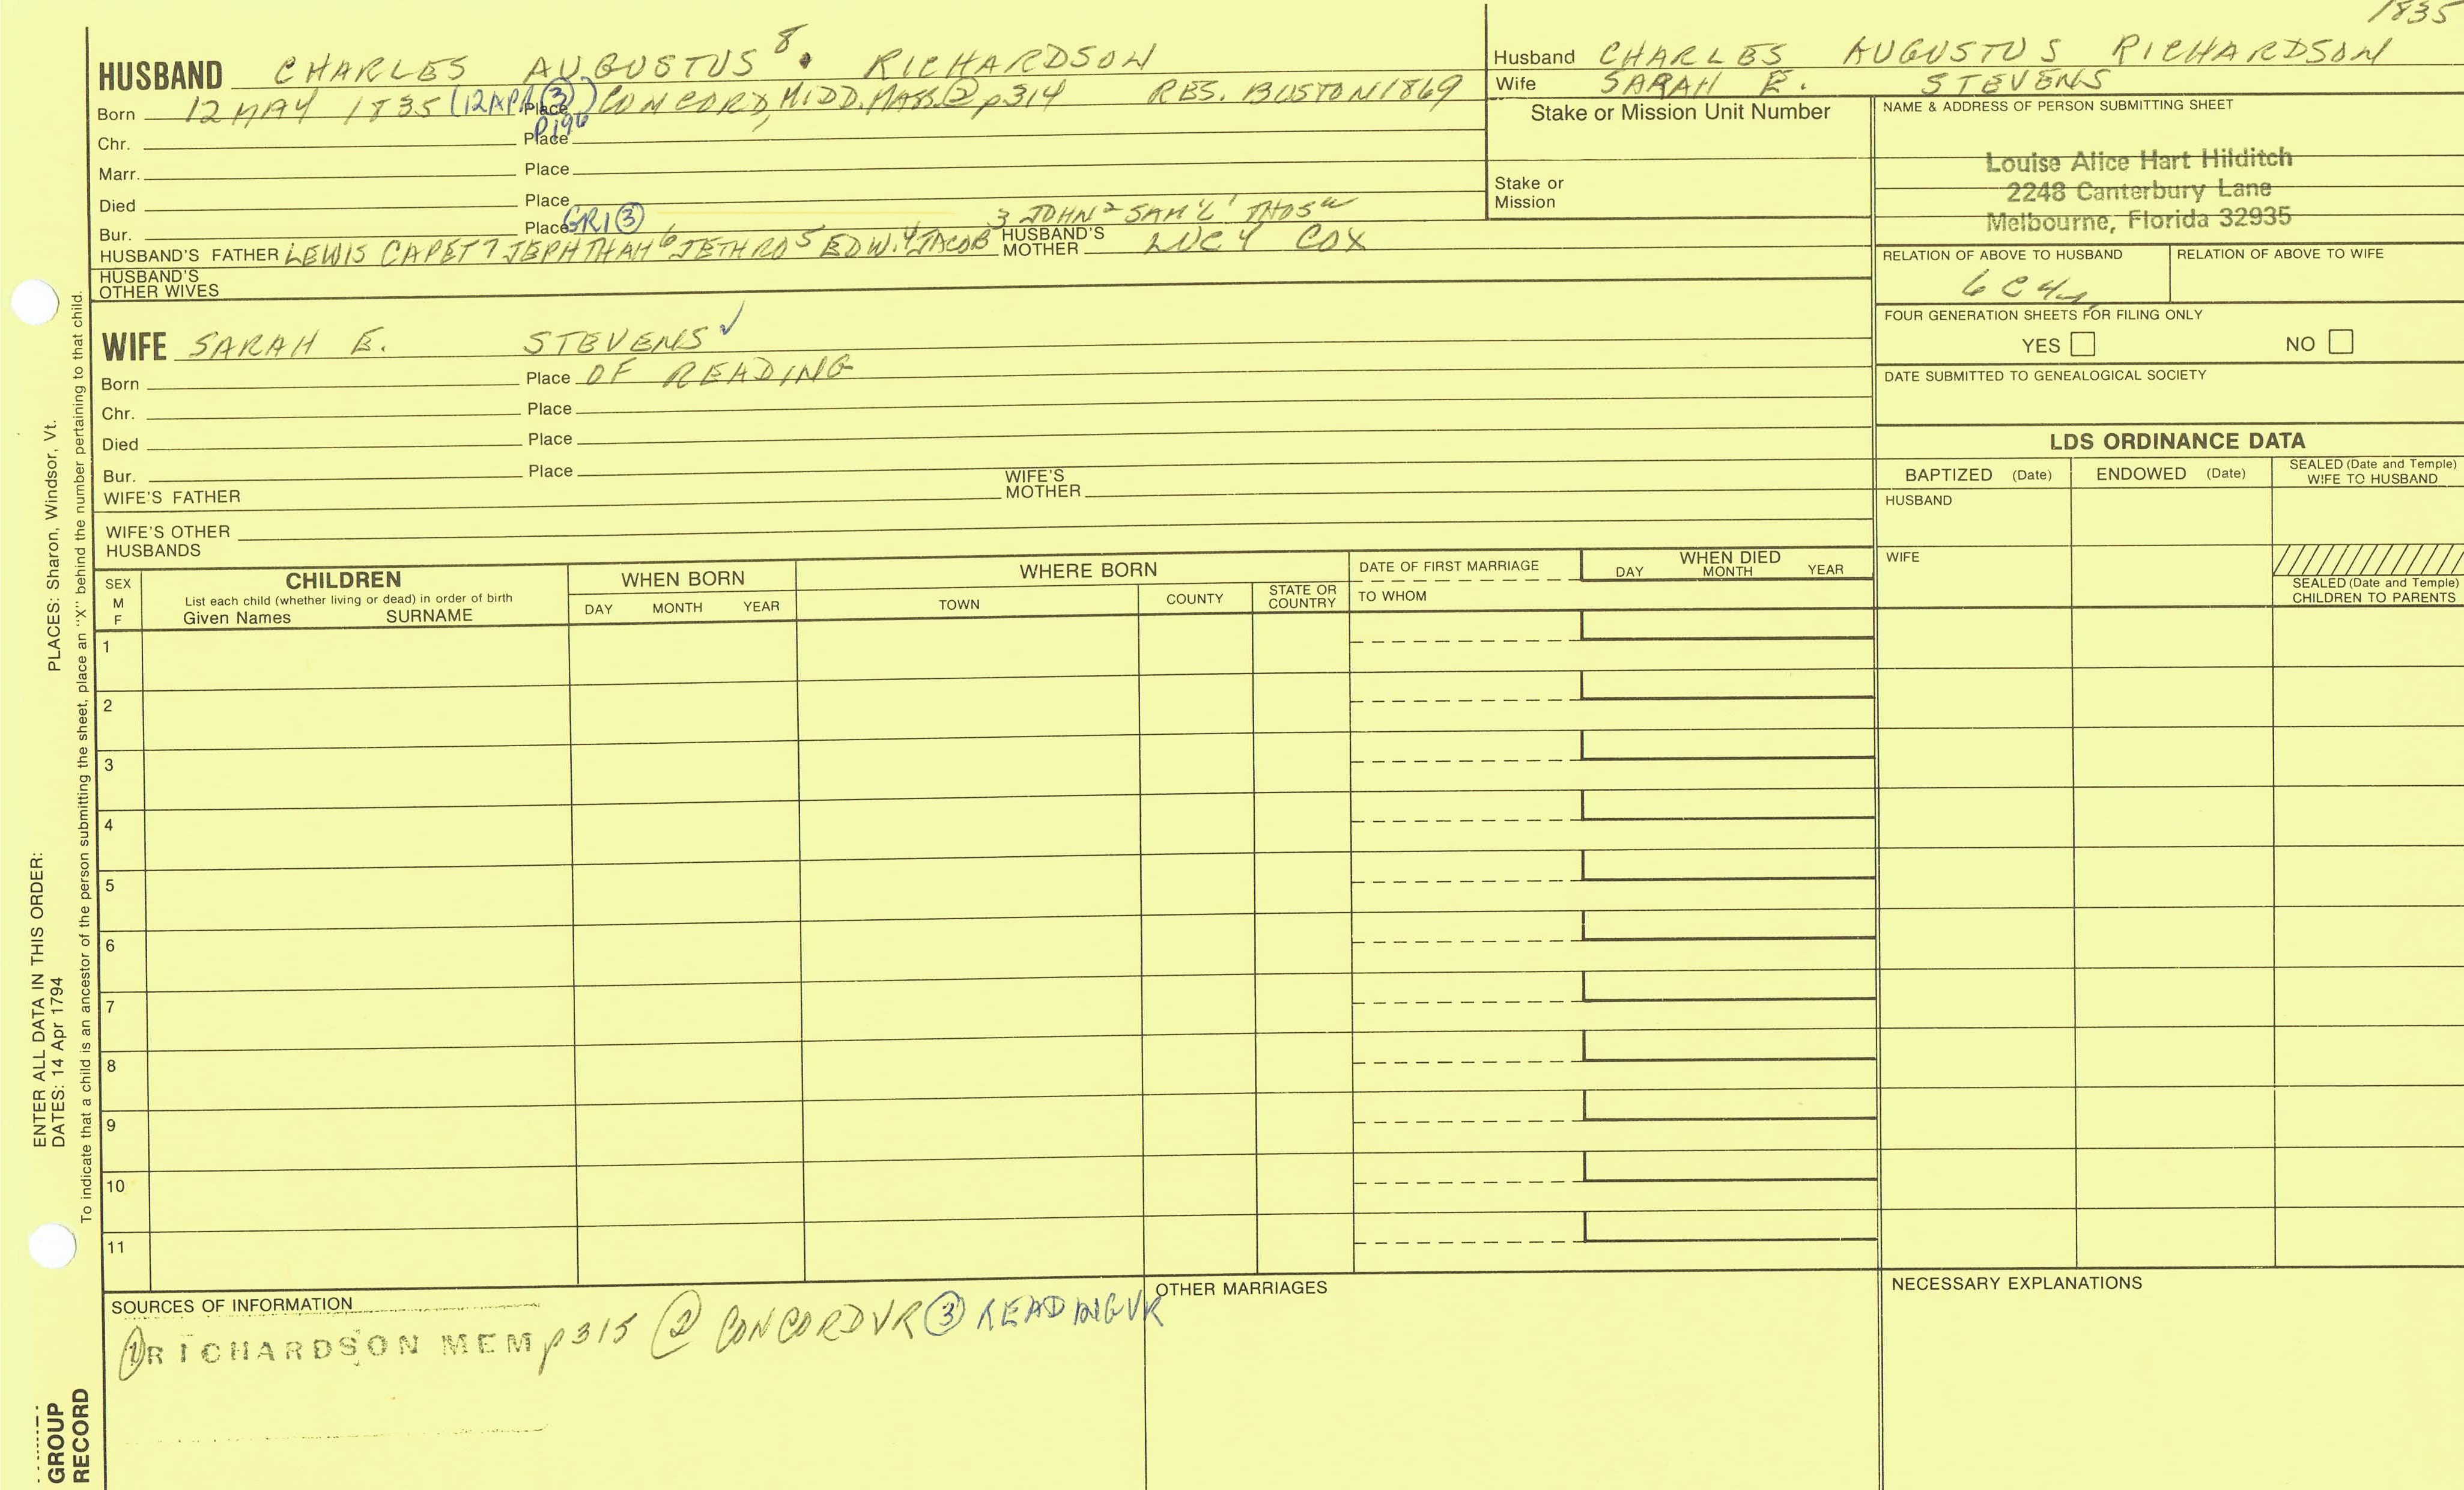 1835
HUSBAND CHARLES AUGUSTUS 8. RICHARDSON
Born 12 MAY 1835 (12 APR ③) Place CONCORD, MIDD. MASS ② p314 RES. BOSTON 1869
P196
Chr. Place
Marr. Place
Died Place
Bur. Place GR1 ③
3 JOHN 2 SAM'L 1 THOS
HUSBAND'S FATHER LEWIS CAPET 7 JEPHTHAH 6 JETHRO 5 EDW. 4 JACOB HUSBAND'S MOTHER LUCY COX
HUSBAND'S OTHER WIVES
Husband CHARLES AUGUSTUS RICHARDSON
Wife SARAH E. STEVENS
Stake or Mission Unit Number
Stake or Mission
NAME & ADDRESS OF PERSON SUBMITTING SHEET
Louise Alice Hart Hilditch
2248 Canterbury Lane
Melbourne, Florida 32935
RELATION OF ABOVE TO HUSBAND RELATION OF ABOVE TO WIFE
6 C 4
FOUR GENERATION SHEETS FOR FILING ONLY
YES NO
DATE SUBMITTED TO GENEALOGICAL SOCIETY
WIFE SARAH E. STEVENS ✓
Born Place OF READING
Chr. Place
Died Place
Bur. Place
WIFE'S FATHER WIFE'S MOTHER
WIFE'S OTHER HUSBANDS
LDS ORDINANCE DATA
BAPTIZED (Date) ENDOWED (Date) SEALED (Date and Temple) WIFE TO HUSBAND
HUSBAND
WIFE
SEALED (Date and Temple) CHILDREN TO PARENTS
SEX M F
CHILDREN
List each child (whether living or dead) in order of birth
Given Names SURNAME
WHEN BORN
DAY MONTH YEAR
WHERE BORN
TOWN COUNTY STATE OR COUNTRY
DATE OF FIRST MARRIAGE
TO WHOM
WHEN DIED
DAY MONTH YEAR
1
2
3
4
5
6
7
8
9
10
11
SOURCES OF INFORMATION
① RICHARDSON MEM p315 ② CONCORD VR ③ READING VR
OTHER MARRIAGES
NECESSARY EXPLANATIONS
ENTER ALL DATA IN THIS ORDER:
DATES: 14 Apr 1794 PLACES: Sharon, Windsor, Vt.
To indicate that a child is an ancestor of the person submitting the sheet, place an "X" behind the number pertaining to that child.
GROUP
RECORD